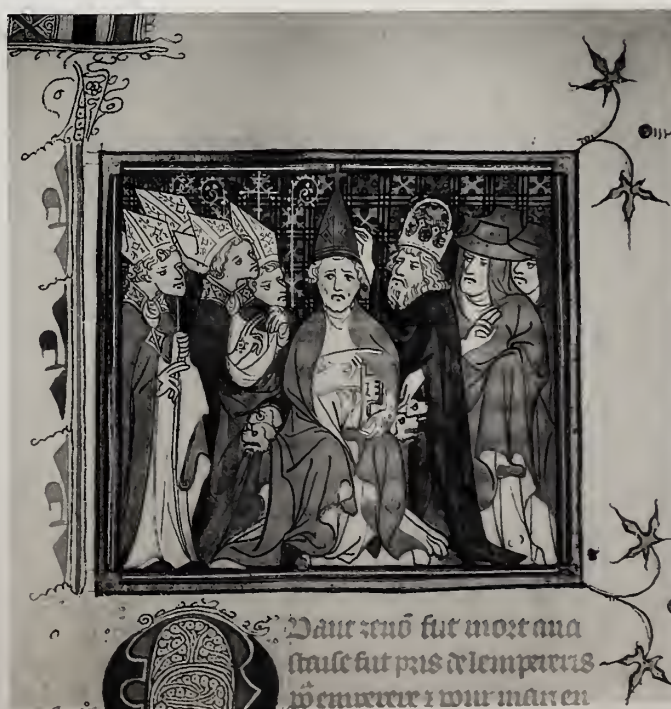 Quant zenõ fut mort ana
stause fut pris de lempereris
 emperere z main en